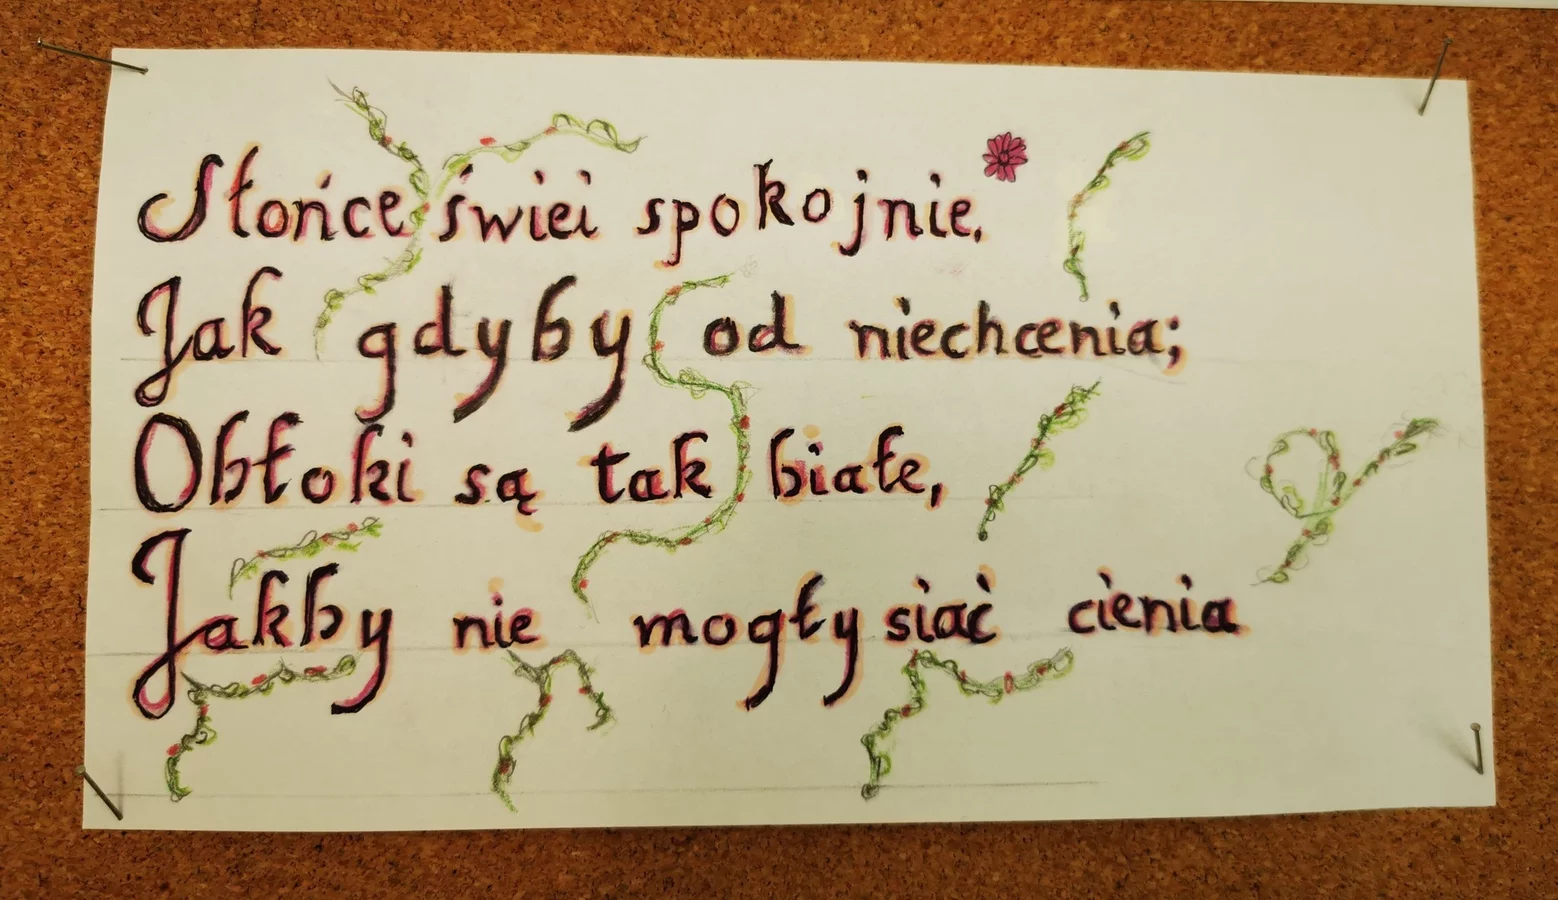 Słońce świei spokojnie,
Jak gdyby od niechcenia;
Obłoki są tak białe,
Jakby nie mogły siać cienia